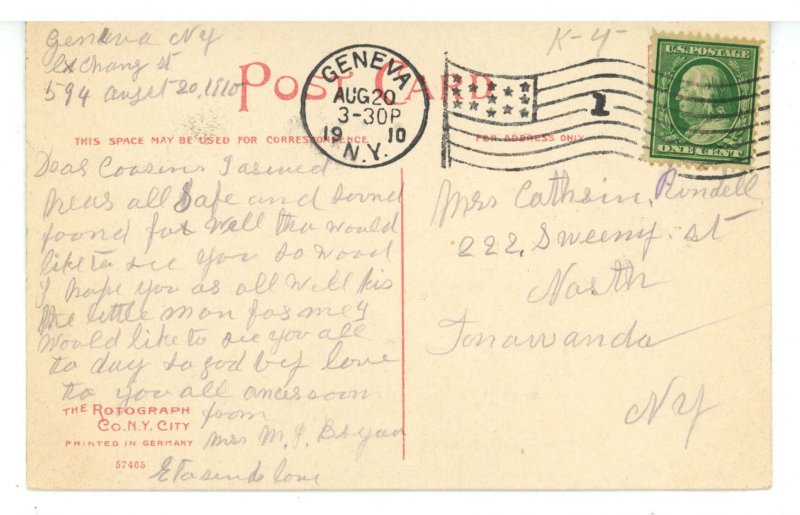 Geneva NY
Exchang st
594 augst 20, 1910
POST CARD
GENEVA
AUG 20
3-30P
1910
N.Y.
1
K-4-
U.S. POSTAGE
ONE CENT
THIS SPACE MAY BE USED FOR CORRESPONDENCE
FOR ADDRESS ONLY
Dear Coosins I arived
heas all safe and sound
foond fas well tha would
like to see you so wood
I hope you as all well kis
the little man fos mey
Would like to see you all
to day so god by love
to you all ances soon
from
Mrs M. J. Bryan
Eta sends love
Mrs Cathrin Rundell
222 Sweeny st
North
Tonawanda
NY
THE ROTOGRAPH
CO. N.Y. CITY
PRINTED IN GERMANY
57465